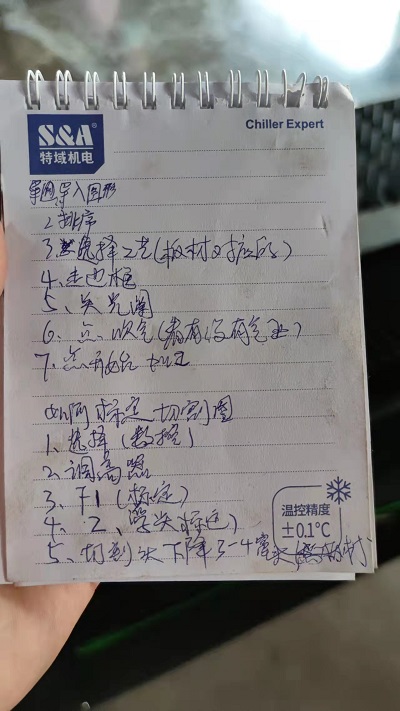 S&A®
特域机电
Chiller Expert
导入图形
2 排序
3 选择工艺(板材对应的)
4、走边框
5、关光闸
6、点、吹气(看有没有气压)
7、点开始加工
如何标定切割图
1、选择(数控)
2、调高器
3、F1(标定)
4、2、
5、切割头下降3-4毫米
温控精度
±0.1℃